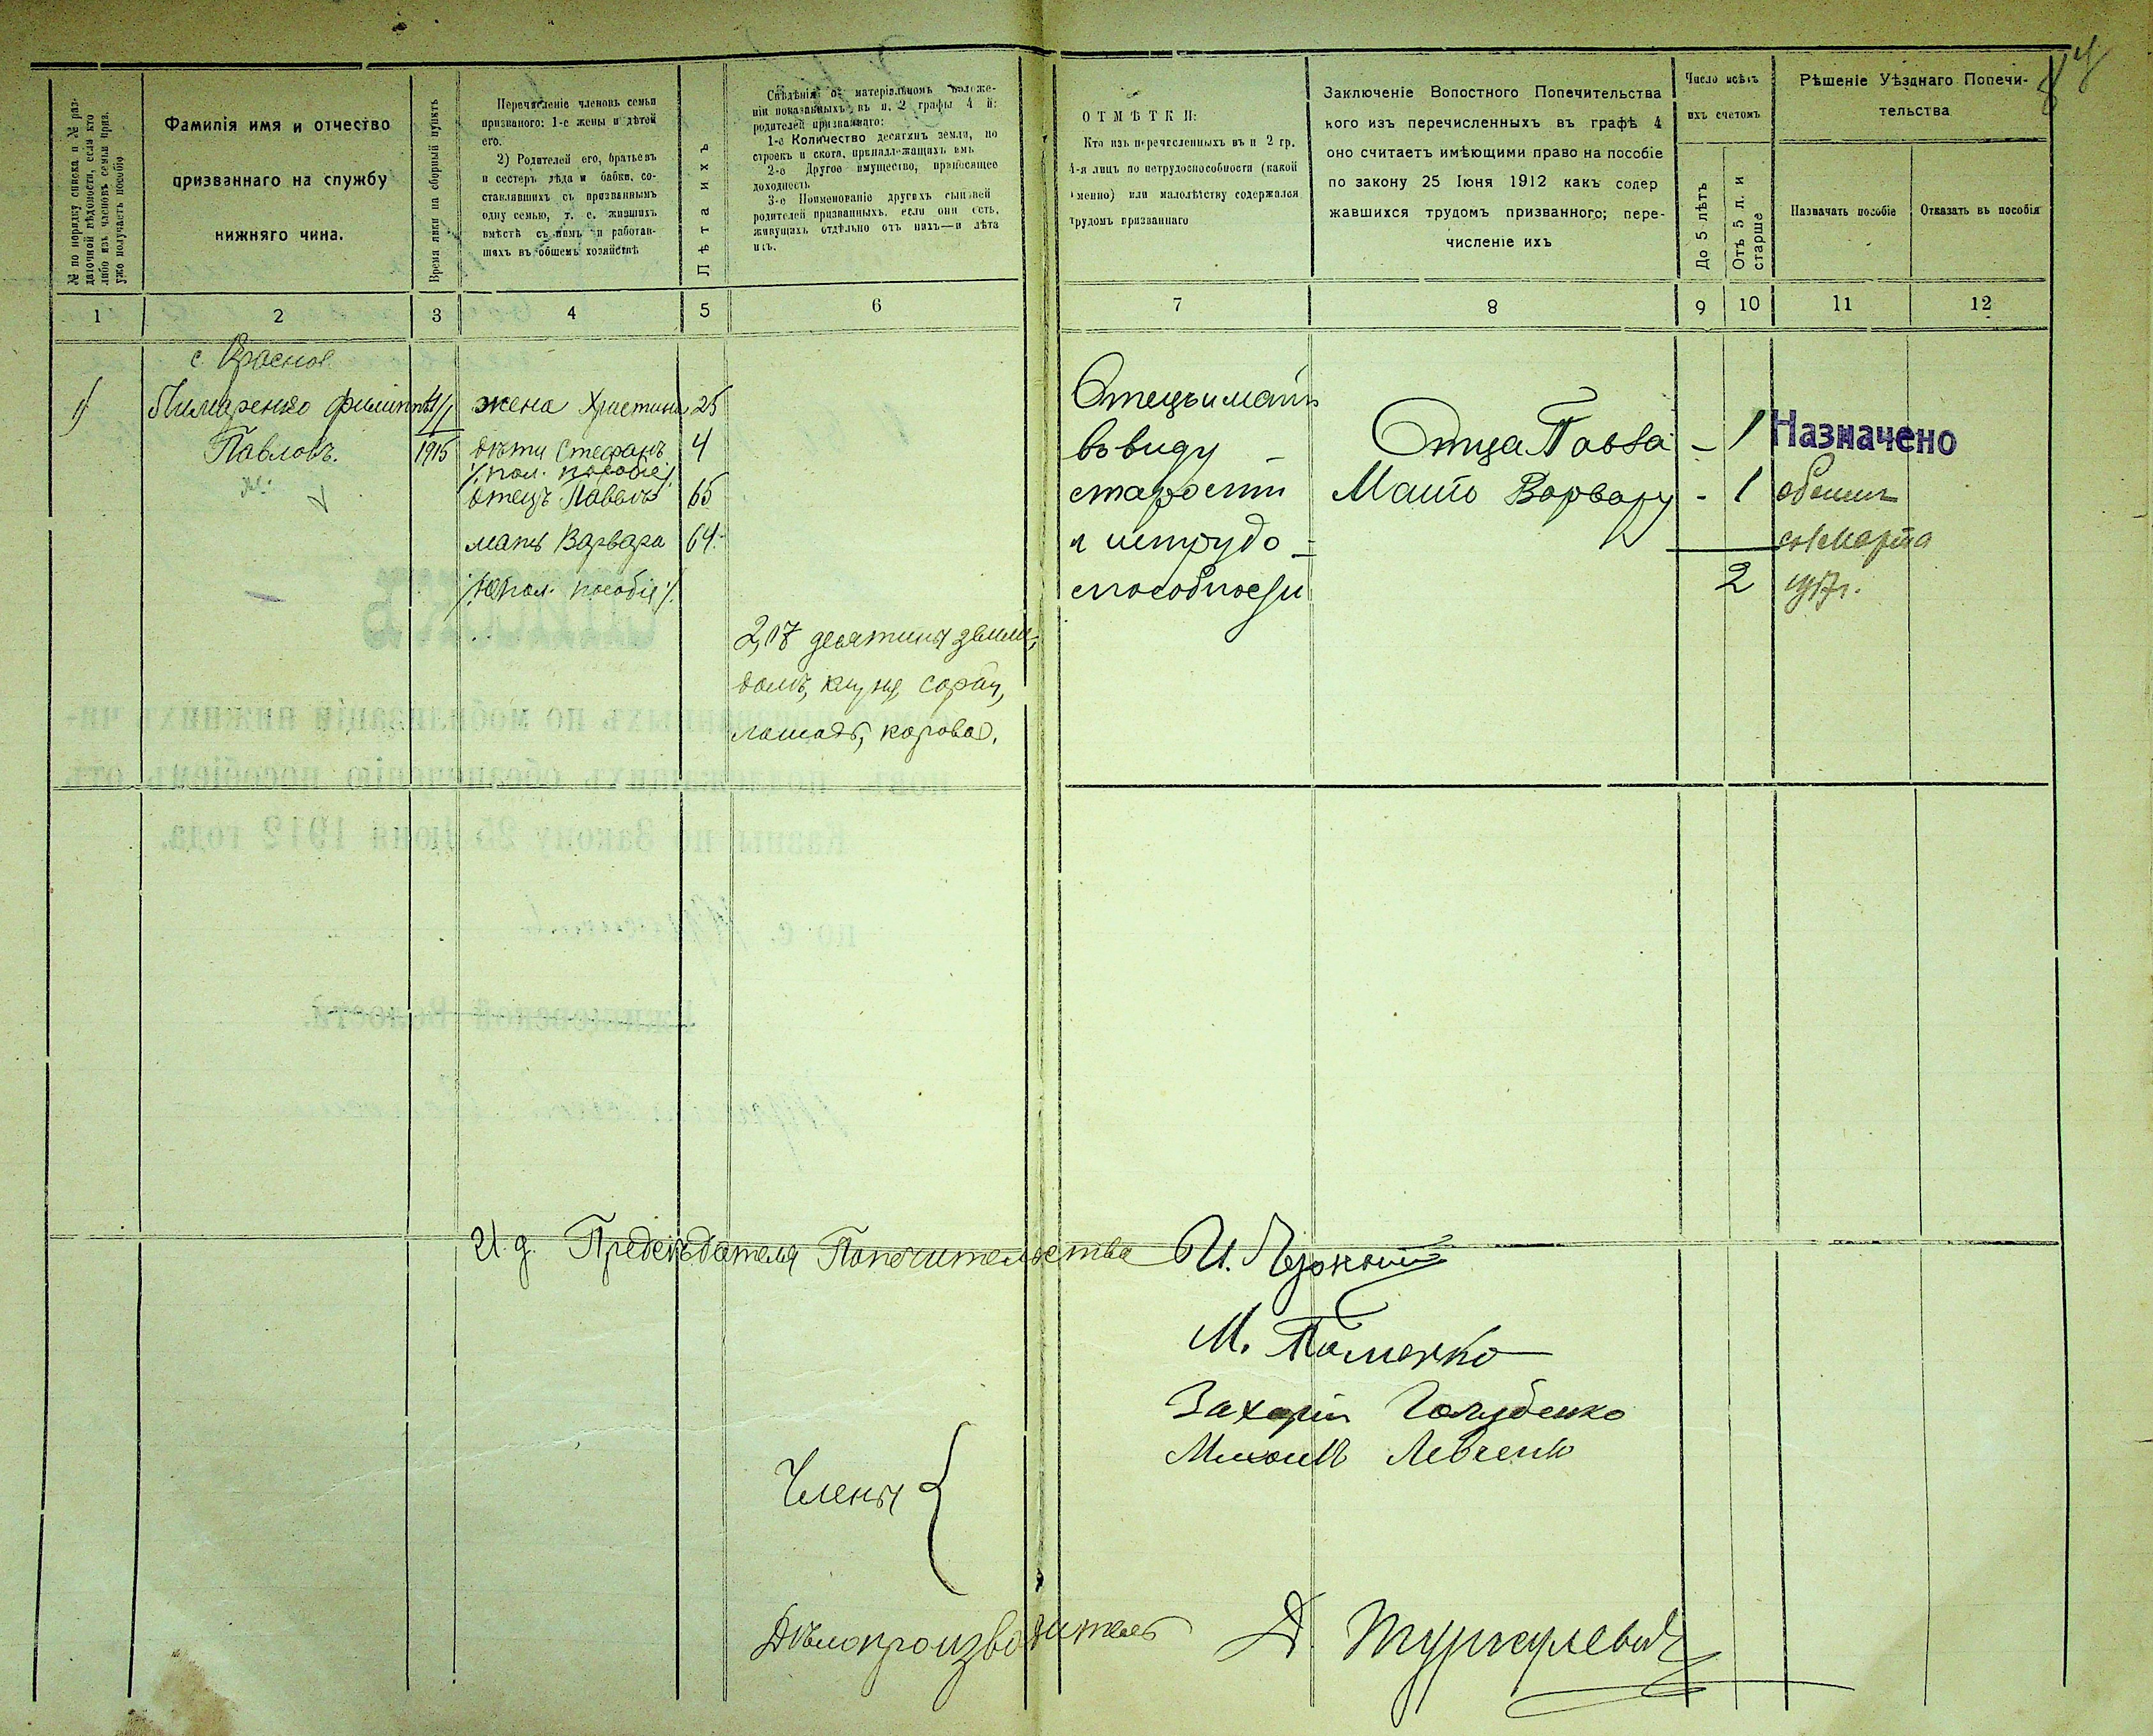 № по порядку списка и № раз-
даточной вѣдомости, если кто
либо изъ членовъ семьи приз.
уже получаетъ пособіе
Фамилія имя и отчество
призваннаго на службу
нижняго чина.
Время явки на сборный пунктъ
Перечисленіе членовъ семьи
призваного: 1-е жены и дѣтей
его.
2) Родителей его, братьевъ
и сестеръ дѣда и бабки, со-
ставлявшихъ съ призваннымъ
одну семью, т. е. жившихъ
вмѣстѣ съ нимъ и работав-
шихъ въ общемъ хозяйствѣ
Лѣта ихъ
Свѣдѣнія о матеріальномъ положе-
ніи показанныхъ въ п. 2 графы 4 й:
родителей призваннаго:
1-е Количество десятинъ земли, по
строекъ и скота, принадлежащихъ имъ
2-е Другое имущество, приносящее
доходность
3-е Поименованіе другихъ сыновей
родителей призванныхъ, если они есть,
живущихъ отдѣльно отъ нихъ—и лѣта
ихъ.
ОТМѢТКИ:
Кто изъ перечисленныхъ въ п 2 гр.
4-я лицъ по нетрудоспособности (какой
именно) или малолѣтству содержался
трудомъ призваннаго
Заключеніе Волостного Попечительства
кого изъ перечисленныхъ въ графѣ 4
оно считаетъ имѣющими право на пособіе
по закону 25 Іюня 1912 какъ содер
жавшихся трудомъ призванного; пере-
численіе ихъ
Число всѣхъ
ихъ счетомъ
До 5 лѣтъ
Отъ 5 л. и
старше
Рѣшеніе Уѣзднаго Попечи-
тельства
Назначать пособіе
Отказать въ пособія
1 2 3 4 5 6 7 8 9 10 11 12
с. Красное
1
Филиппъ
Павловъ.
1915
жена Христина 25
дѣти Стефанъ 4
/пол. пособіе/
отецъ Павелъ 65
мать Варвара 64
пол. пособіе
2,07 десятины земли,
домъ, клуня, сарай,
лошадь, корова.
Отецъ и мать
въ виду
старости
и нетрудо-
способности
Отца Павла - 1
Мать Варвару - 1
2
Назначено
съ 1 марта
1917 г.
И. д. Предсѣдателя Попечительства
М. Пименко
Захарій Голубенко
Михаилъ Левченко
Члены
Дѣлопроизводитель